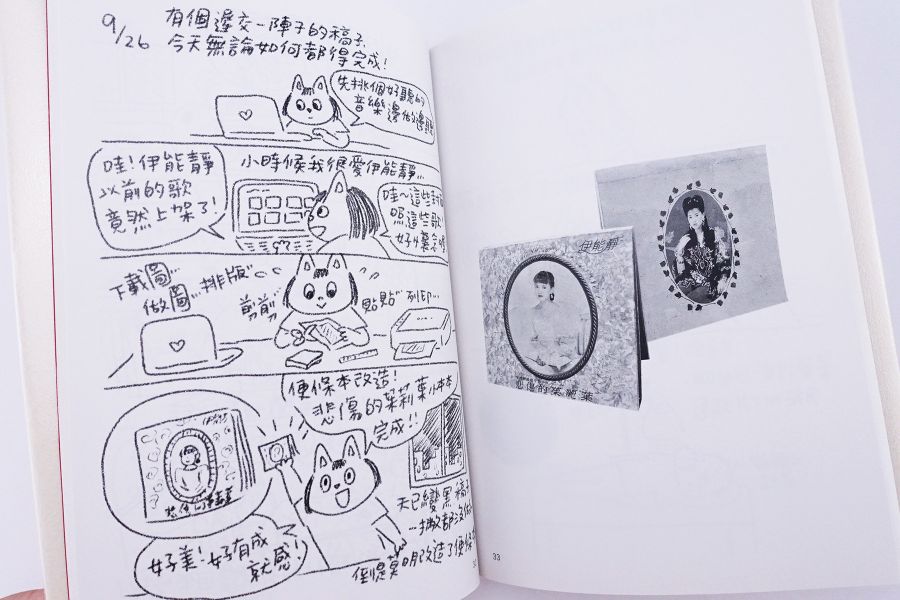 9/26
有個遲交一陣子的稿子，
今天無論如何都得完成！
先挑個好聽的
音樂邊做邊聽
哇！伊能靜
以前的歌
竟然上架了！
小時候我很愛伊能靜…
哇～這些封面
照這些歌
好懷念
下載圖…
做圖…排版
剪剪
貼貼
列印…
便條本改造！
悲傷的茱莉葉小本本
完成！！
好美！好有成
就感！
天已變黑 稿子
…一撇都沒
倒是莫明改造了便條
伊能靜
悲傷的茱麗葉
33